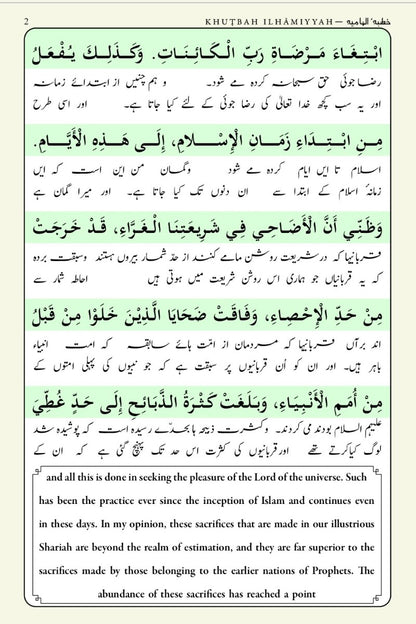 2 KHUṬBAH ILHĀMIYYAH — خطبہ الہامیہ
ابْتِغَاءَ مَرْضَاةِ رَبِّ الْكَائِنَاتِ. وَكَذٰلِكَ يُفْعَلُ
رضا جوئی حق سبحانہ کردہ مے شود۔ و ہم چنیں از ابتدائے زمانہ
اور یہ سب کچھ خدا تعالیٰ کی رضا جوئی کے لئے کیا جاتا ہے۔ اور اسی طرح
مِنِ ابْتِدَاءِ زَمَانِ الْإِسْلَامِ، إِلَى هَذِهِ الْأَيَّامِ.
اسلام تا ایں ایام کردہ مے شود وگمان من این است کہ ایں
زمانۂ اسلام کے ابتدا سے ان دنوں تک کیا جاتا ہے۔ اور میرا گمان ہے
وَظَنِّي أَنَّ الْأَضَاحِي فِي شَرِيعَتِنَا الْغَرَّاءِ، قَدْ خَرَجَتْ
قربانیہا کہ درشریعت روشن مامے کنند از حدّ شمار بیروں ہستند وسبقت بردہ
کہ یہ قربانیاں جو ہماری اس روشن شریعت میں ہوتی ہیں احاطہ شمار سے
مِنْ حَدِّ الْإِحْصَاءِ، وَفَاقَتْ ضَحَايَا الَّذِينَ خَلَوْا مِنْ قَبْلُ
اند برآں قربانیہا کہ مردمان از امّت ہائے سابقہ کہ امت انبیاء
باہر ہیں۔ اور ان کو اُن قربانیوں پر سبقت ہے کہ جو نبیوں کی پہلی امتوں کے
مِنْ أُمَمِ الْأَنْبِيَاءِ، وَبَلَغَتْ كَثْرَةُ الذَّبَائِحِ إِلَى حَدٍّ غُطِّيَ
علیہم السلام بودند می کردند۔ وکثرت ذبیحہ ہا بحدّے رسیدہ است کہ پوشیدہ شد
لوگ کیا کرتے تھے اور قربانیوں کی کثرت اس حد تک پہنچ گئی ہے کہ ان کے
and all this is done in seeking the pleasure of the Lord of the universe. Such
has been the practice ever since the inception of Islam and continues even
in these days. In my opinion, these sacrifices that are made in our illustrious
Shariah are beyond the realm of estimation, and they are far superior to the
sacrifices made by those belonging to the earlier nations of Prophets. The
abundance of these sacrifices has reached a point